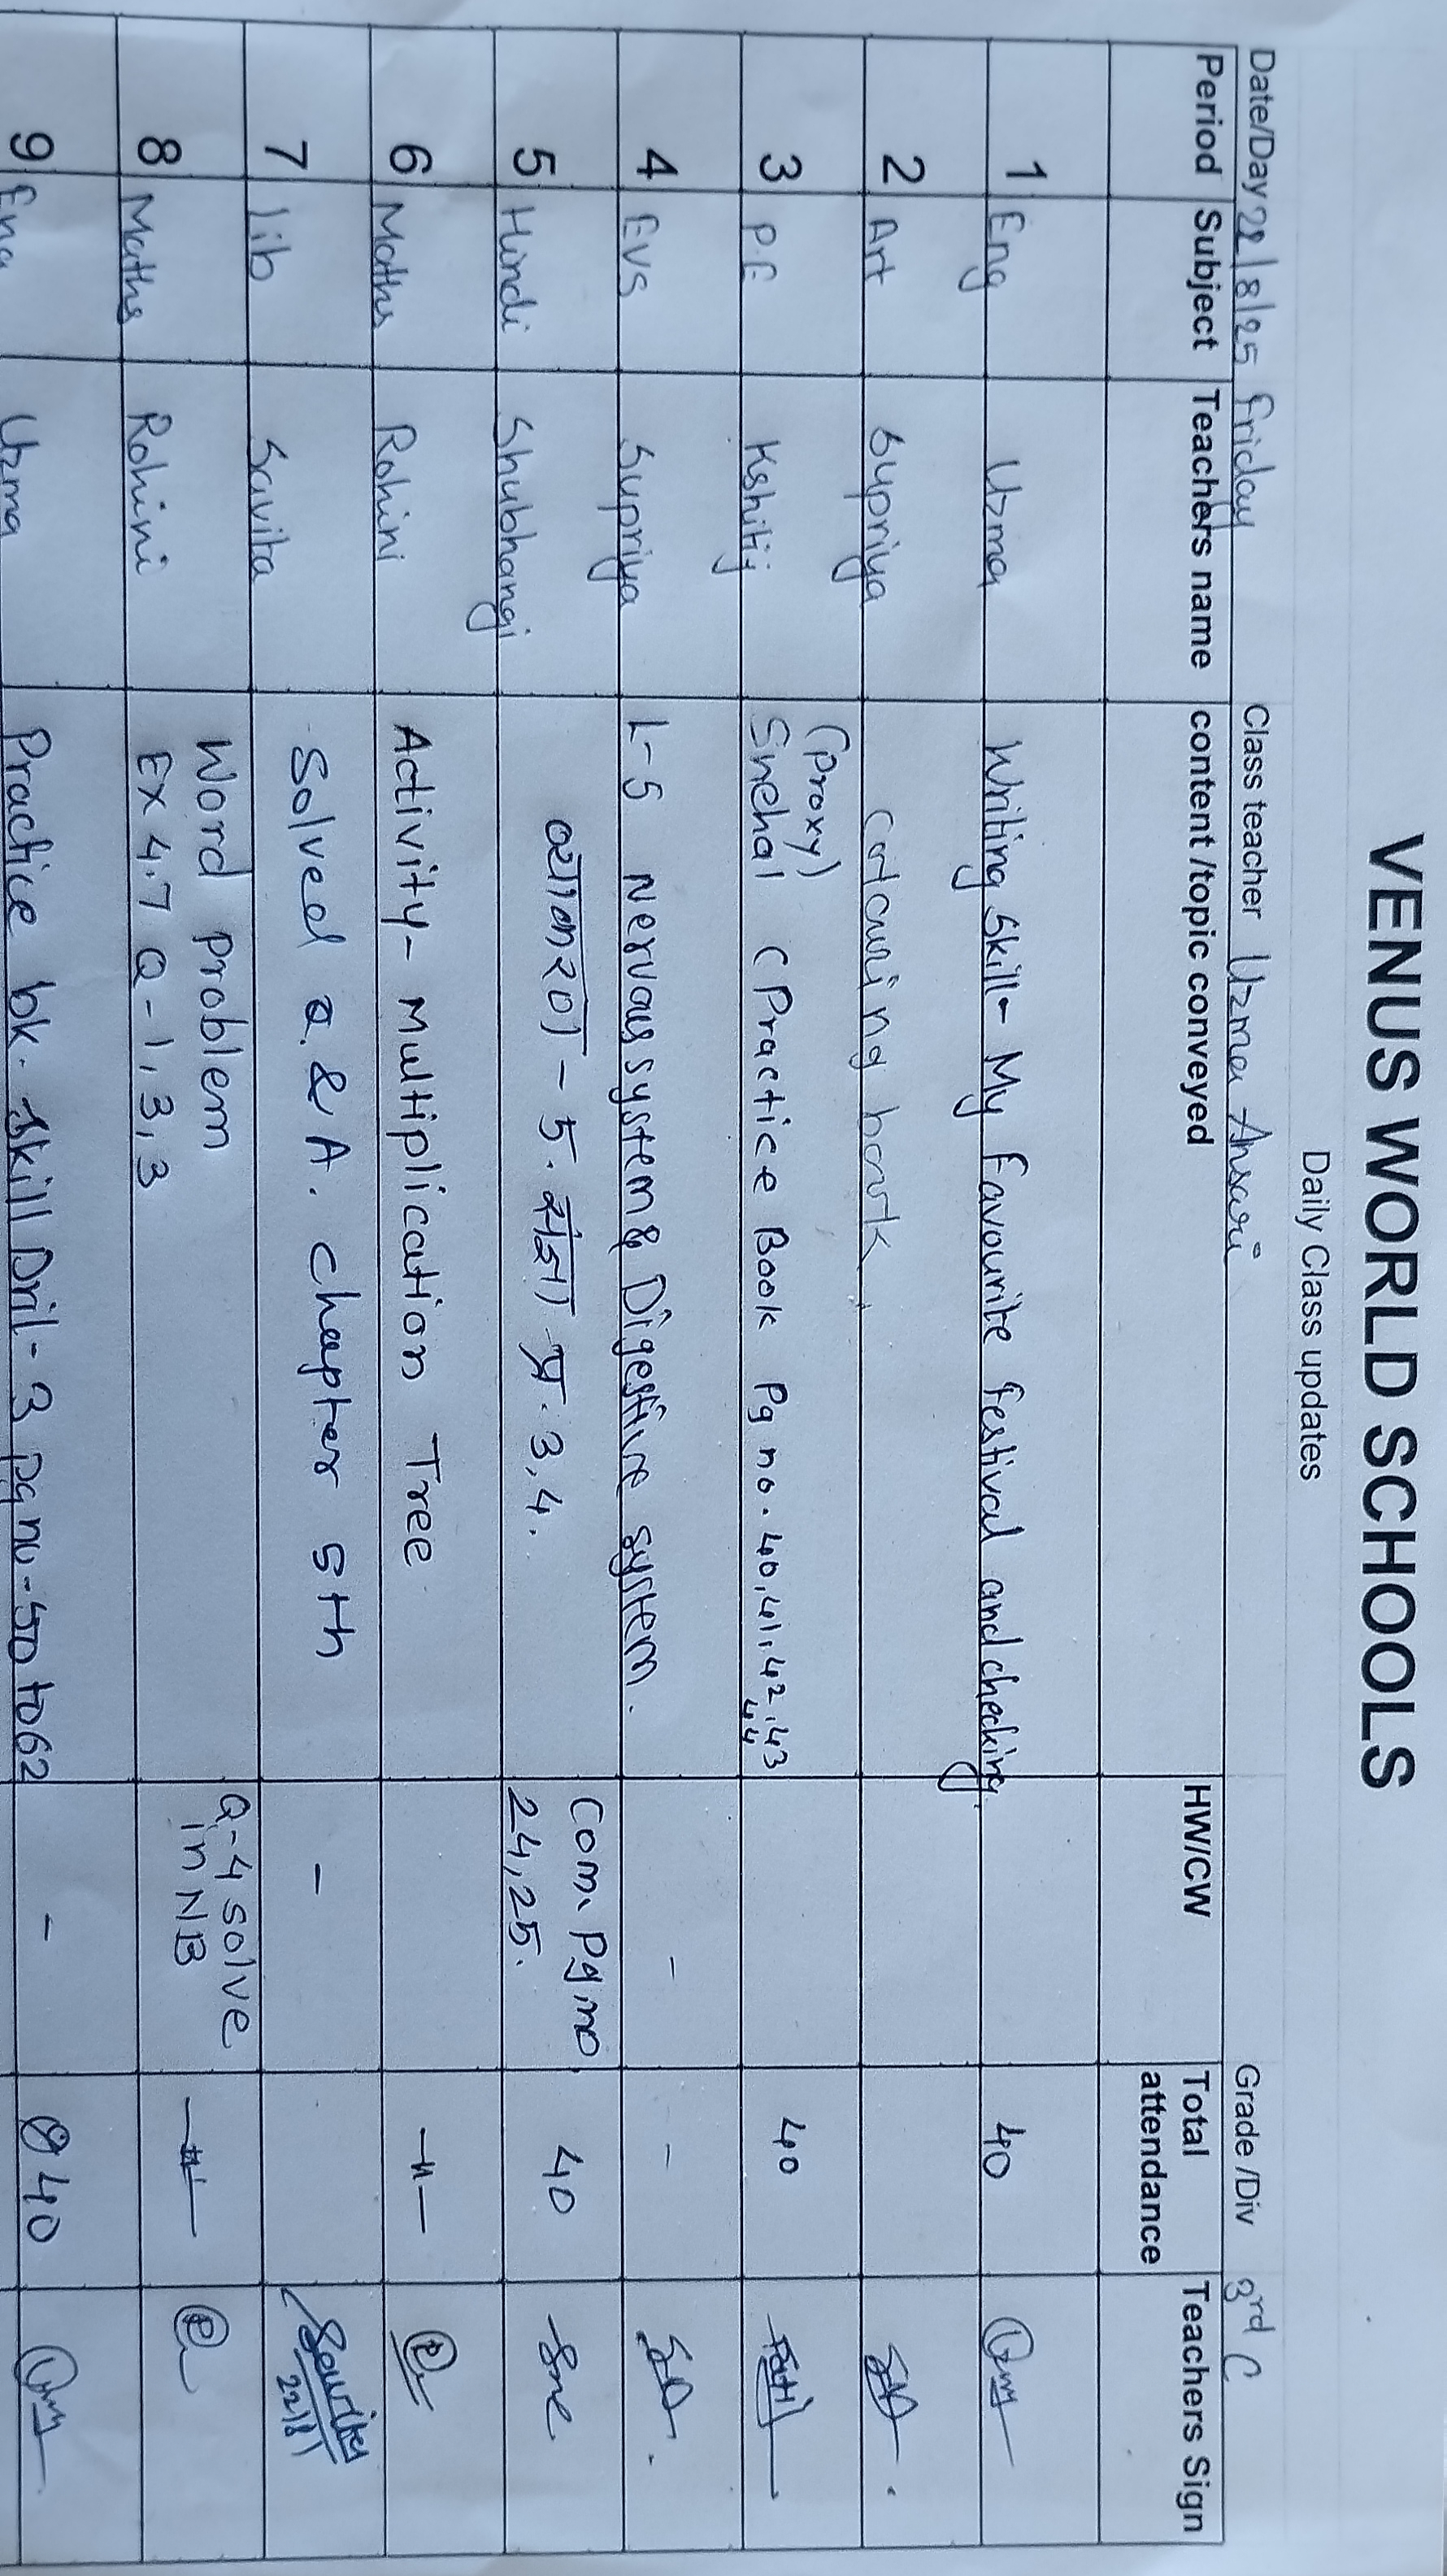 VENUS WORLD SCHOOLS
Daily Class updates
Date/Day 22/8/25 Friday Class teacher Uzma Ansari Grade /Div 3rd C
Period Subject Teachers name content /topic conveyed HW/CW Total attendance Teachers Sign
1 Eng Uzma Writing Skill - My Favourite festival and checking. 40
2 Art Supriya Colouring book.
3 P.E Kshitij (Proxy) Snehal (Practice Book Pg no. 40,41,42,43 44 40
4 EVS Supriya L-5 Nervous system & Digestive system. - -
5 Hindi Shubhangi व्याकरण - 5. संज्ञा प्र. 3,4. Com. Pg no. 24,25. 40
6 Maths Rohini Activity - Multiplication Tree —〃—
7 lib Savita Solved Q. & A. chapter 5th - Savita 22/8
8 Maths Rohini Word Problem
Ex 4.7 Q-1,3,3 Q-4 solve in NB —〃—
9 Eng Uzma Practice bk. Skill Dril-3 Pg no-50 to 62 - 40